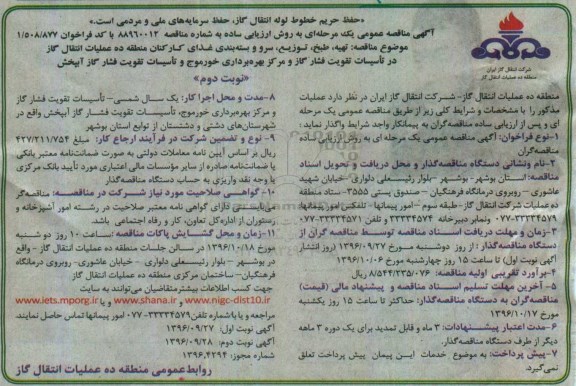 «حفظ حریم خطوط لوله انتقال گاز، حفظ سرمایه‌های ملی و مردمی است.»
آگهی مناقصه عمومی یک مرحله‌ای به روش ارزیابی ساده به شماره مناقصه ۸۸۹۶۰۰۱۲ با کد فراخوان ۱/۵۰۸/۸۷۷
موضوع مناقصه: تهیه، طبخ، توزیع، سرو و بسته‌بندی غذای کارکنان منطقه ده عملیات انتقال گاز
در تأسیسات تقویت فشار گاز و مرکز بهره‌برداری خورموج و تأسیسات تقویت فشار گاز آبپخش
«نوبت دوم»
شرکت انتقال گاز ایران
منطقه ده عملیات انتقال گاز
منطقه ده عملیات انتقال گاز- شرکت انتقال گاز ایران در نظر دارد عملیات
مذکور را با مشخصات و شرایط کلی زیر از طریق مناقصه عمومی یک مرحله
ای و پس از ارزیابی ساده مناقصه‌گران به پیمانکار واجد شرایط واگذار نماید:
۱- نوع فراخوان: آگهی مناقصه عمومی یک مرحله ای به روش ارزیابی ساده
مناقصه‌گران
۲-نام ونشانی دستگاه مناقصه‌گذار و محل دریافت و تحویل اسناد
مناقصه: استان بوشهر- بوشهر -بلوار رئیسعلی دلواری- خیابان شهید
عاشوری - روبروی درمانگاه فرهنگیان - صندوق پستی ۳۵۵۵- ستاد منطقه
ده عملیات شرکت انتقال گاز- طبقه سوم -امور پیمانها - تلفکس امور پیمانها
۳۳۳۳۴۵۷۹-۰۷۷ ونمابر دبیرخانه ۳۳۳۳۴۵۷۴ و تلفن ۳۳۳۳۴۵۷۱-۰۷۷
۳-زمان و مهلت دریافت اسناد مناقصه توسط مناقصه گران از
دستگاه مناقصه‌گذار : از روز دوشنبه مورخ ۱۳۹۶/۰۹/۲۷ (روز انتشار
آگهی نوبت اول) تا ساعت ۱۵ روز چهارشنبه مورخ ۱۳۹۶/۱۰/۰۶
۴-برآورد تقریبی اولیه مناقصه: ۸/۵۴۴/۲۳۵/۰۷۶ ریال
۵- آخرین مهلت تسلیم اسناد مناقصه و پیشنهاد مالی (قیمت)
مناقصه‌گران به دستگاه مناقصه‌گذار: حداکثر تا ساعت ۱۵ روز یکشنبه
مورخ ۱۳۹۶/۱۰/۱۷
۶-مدت اعتبار پیشنهادات: ۳ ماه و قابل تمدید برای یک دوره ۳ ماهه
دیگر از طرف دستگاه مناقصه‌گذار.
۷- پیش پرداخت: به موضوع خدمات این پیمان پیش پرداخت تعلق
نمی‌گیرد.
۸-مدت و محل اجرا کار: یک سال شمسی- تأسیسات تقویت فشار گاز
و مرکز بهره‌برداری خورموج، تأسیسات تقویت فشار گاز آبپخش واقع در
شهرستان‌های دشتی و دشتستان از توابع استان بوشهر
۹- نوع و تضمین شرکت در فرآیند ارجاع کار: مبلغ ۴۲۷/۲۱۱/۷۵۴
ریال بر اساس آیین نامه معاملات دولتی به صورت ضمانت‌نامه معتبر بانکی
یا ضمانت‌نامه صادره از سایر مؤسسات مالی اعتباری مورد تأیید بانک مرکزی
یا وجه نقد واریزی به حساب دستگاه مناقصه‌گذار
۱۰- گواهی صلاحیت مورد نیاز شرکت در مناقصه: مناقصه‌گر
می‌بایست دارای گواهی نامه معتبر صلاحیت در رشته امور آشپزخانه و
رستوران از اداره‌کل تعاون، کار و رفاه اجتماعی باشد.
۱۱- زمان و محل گشایش پاکات مناقصه: ساعت ۱۰ روز دوشنبه
مورخ ۱۳۹۶/۱۰/۱۸ در سالن جلسات منطقه ده عملیات انتقال گاز - واقع
در بوشهر - بلوار رئیسعلی دلواری - خیابان عاشوری- روبروی درمانگاه
فرهنگیان- ساختمان مرکزی منطقه ده عملیات انتقال گاز
جهت کسب اطلاعات بیشتر متقاضیان می‌توانند به سایت
www.nigc-dist10.ir و یا www.shana.ir و یا www.iets.mporg.ir
مراجعه و یا با شماره تلفن ۳۳۳۳۴۵۷۹-۰۷۷ امور پیمانها تماس حاصل نمایند.
آگهی نوبت اول: ۱۳۹۶/۰۹/۲۷
آگهی نوبت دوم: ۱۳۹۶/۰۹/۲۸
شماره مجوز: ۱۳۹۶.۴۲۹۴
روابط عمومی منطقه ده عملیات انتقال گاز